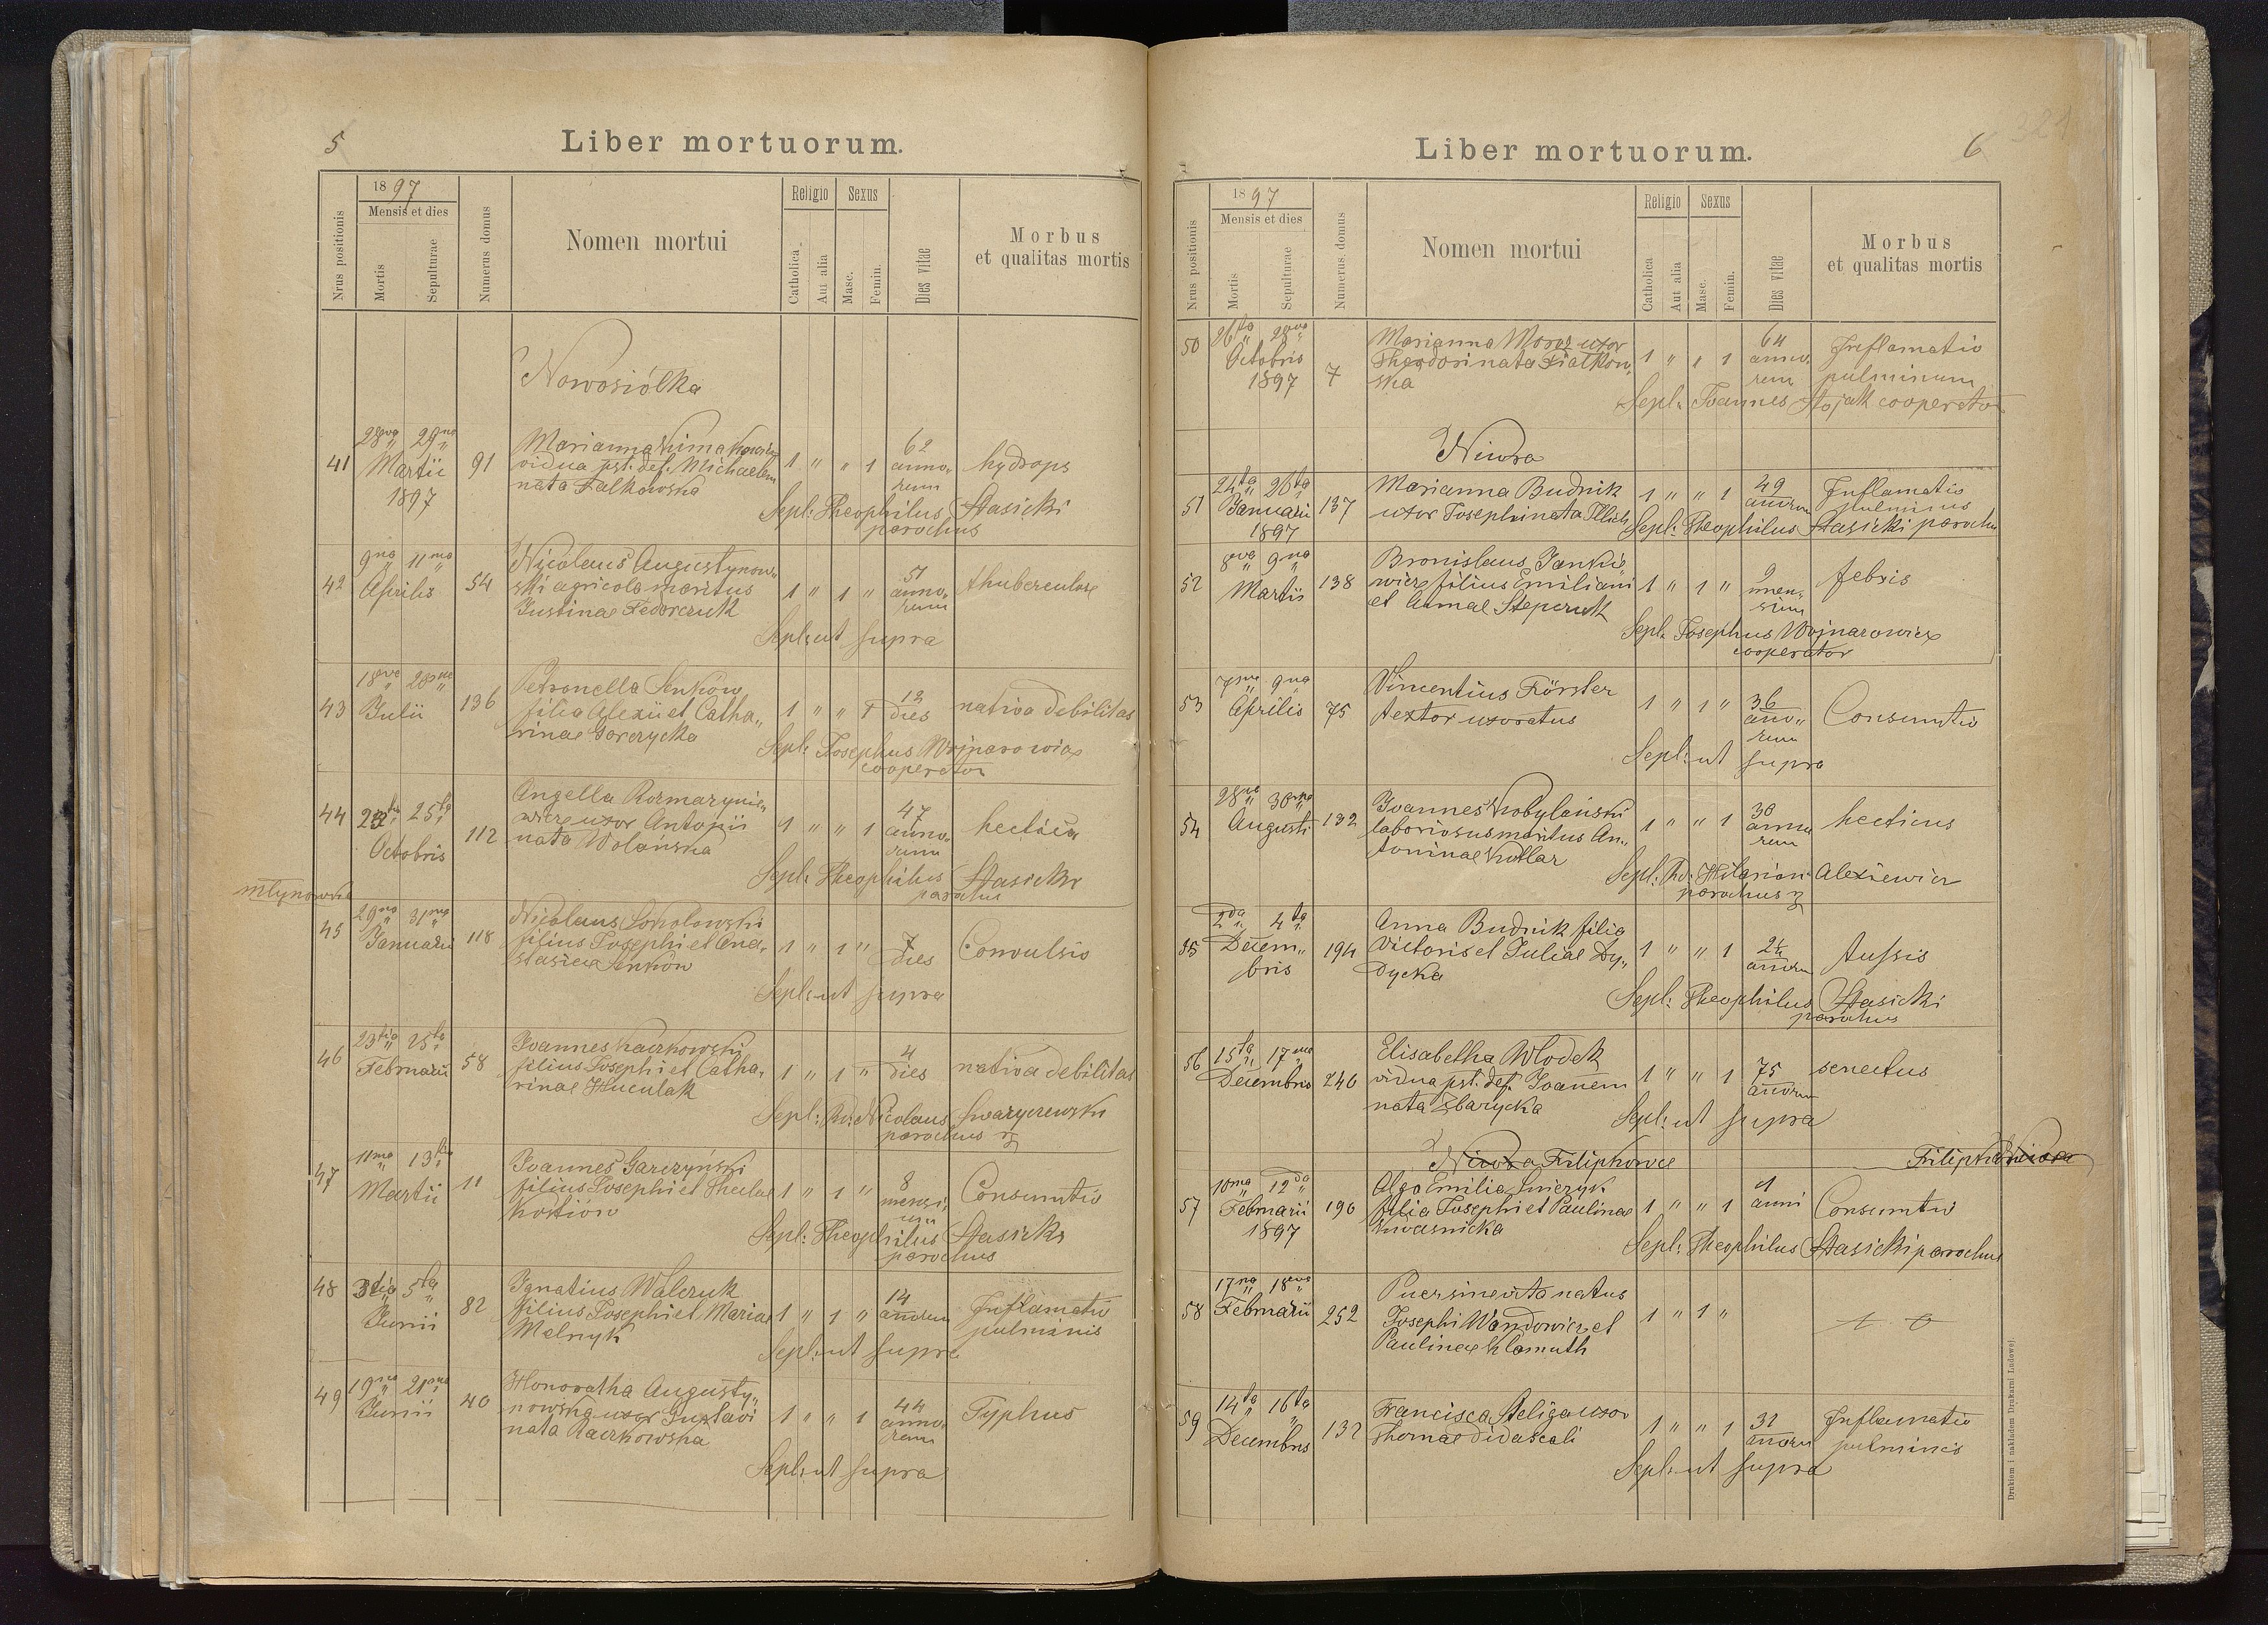 5
Liber mortuorum.
Nrus positionis
1897
Mensis et dies
Mortis
Sepulturae
Numerus domus
Nomen mortui
Religio
Catholica
Aut alia
Sexus
Masc.
Femin.
Dies vitae
Morbus
et qualitas mortis
Nowosiółka
41
28va 29na
Martii
1897
91
Marianna
vidua pst. def. Michaelem
nata Falkowska
1 " " 1
62
anno„
rum
hydrops
Sepl: Theophilus Stasicki
parochus
42
9na 11ma
Aprilis
54
Nicolaus Augustynow„
ski agricola maritus
Justinae Fedorczuk
1 " 1 "
51
anno„
rum
thuberculose
Sepl: ut supra
43
18va 20ma
Julii
136
Petronella Senków
filia Alexii et Catha„
rinae Gorczycka
1 " " 1
12
dies
nativa debilitas
Sepl: Josephus Wojnarowicz
cooperator
44
25ta
Octobris
112
Angella Rozmarynie„
wicz uxor Antonii
nata Wolańska
1 " " 1
47
anno„
rum
hectica
Sepl: Theophilus Stasicki
parochus
młynowka
45
29na 31ma
Januarii
118
Nicolaus Sokołowski
filius Josephi et Ana„
stasiae Senków
1 " 1 "
7
dies
Convulsio
Sepl: ut supra
46
23tia 25ta
Februarii
58
Joannes Kaczkowski
filius Josephi et Catha„
rinae Huculak
1 " 1 "
4
dies
nativa debilitas
Sepl: Rd: Nicolaus Swaryczewski
parochus
47
11ma 13tia
Martii
11
Joannes Garczyński
filius Josephi et Theclae
Kostiow
1 " 1 "
8
mensi„
um
Consumtio
Sepl: Theophilus Stasicki
parochus
48
3tia 5ta
Junii
82
Ignatius Walczuk
filius Josephi et Mariae
Melnyk
1 " 1 "
14
anorum
Inflamatio
pulminis
Sepl: ut supra
49
19na 21ma
Junii
40
Honoratha Augusty„
nowska uxor Gustavi
nata Kaczkowska
1 " " 1
44
anno„
rum
Typhus
Sepl: ut supra
6
321
Liber mortuorum.
Nrus positionis
1897
Mensis et dies
Mortis
Sepulturae
Numerus domus
Nomen mortui
Religio
Catholica
Aut alia
Sexus
Masc.
Femin.
Dies vitae
Morbus
et qualitas mortis
50
26ta 28va
Octobris
1897
7
Marianna Moroz uxor
Theodori nata Fiałkow„
ska
1 " " 1
64
anno„
rum
Inflamatio
pulminum
Sepl: Joannes Stojak cooperator
Niwra
51
24ta 26ta
Januarii
1897
137
Marianna Budnik
uxor Josephi nata Illich
1 " " 1
49
anorum
Inflamatio
pulminus
Sepl: Theophilus Stasicki parochus
52
8va 9na
Martii
138
Bronislaus Jankie„
wicz filius Emiliani
et Annae Stepczuk
1 " 1 "
9
men„
sium
febris
Sepl: Josephus Wojnarowicz
cooperator
53
7ma 9na
Aprilis
75
Vincentius Förster
textor uxoratus
1 " 1 "
36
ano„
rum
Consumtio
Sepl: ut supra
54
28va 30ma
Augusti
132
Joannes Kobylański
laboriosus maritus An„
toninae Kotlar
1 " " 1
30
anno
rum
hecticus
Sepl: Rd. Hilarion Alexiewicz
parochus
55
2da 4ta
Decem„
bris
194
Anna Budnik filia
Victoris et Juliae Dy„
dycka
1 " " 1
2½
anorum
tussis
Sepl: Theophilus Stasicki
parochus
56
15ta 17ma
Decembris
246
Elisabetha Wlodek
vidua pst. def. Joanem
nata Zbarycka
1 " " 1
75
anorum
senectus
Sepl: ut supra
Niwra Filipkowce
Filipko Niwra
57
10ma 12da
Februarii
1897
190
Olga Emilia
filia Josephi et Paulinae
Kwasnicka
1 " " 1
1
anni
Consumtio
Sepl: Theophilus Stasicki parochus
58
17ma 18va
Februarii
252
Puer sine vita natus
Josephi Wandowicz et
Paulinae Klamuth
1 " 1 "
59
14ta 16ta
Decembris
132
Francisca Steliga uxor
Thomae didascali
1 " " 1
32
anorum
Inflamatio
pulminis
Sepl: ut supra
Drukiem i nakładem Drukarni Ludowej.